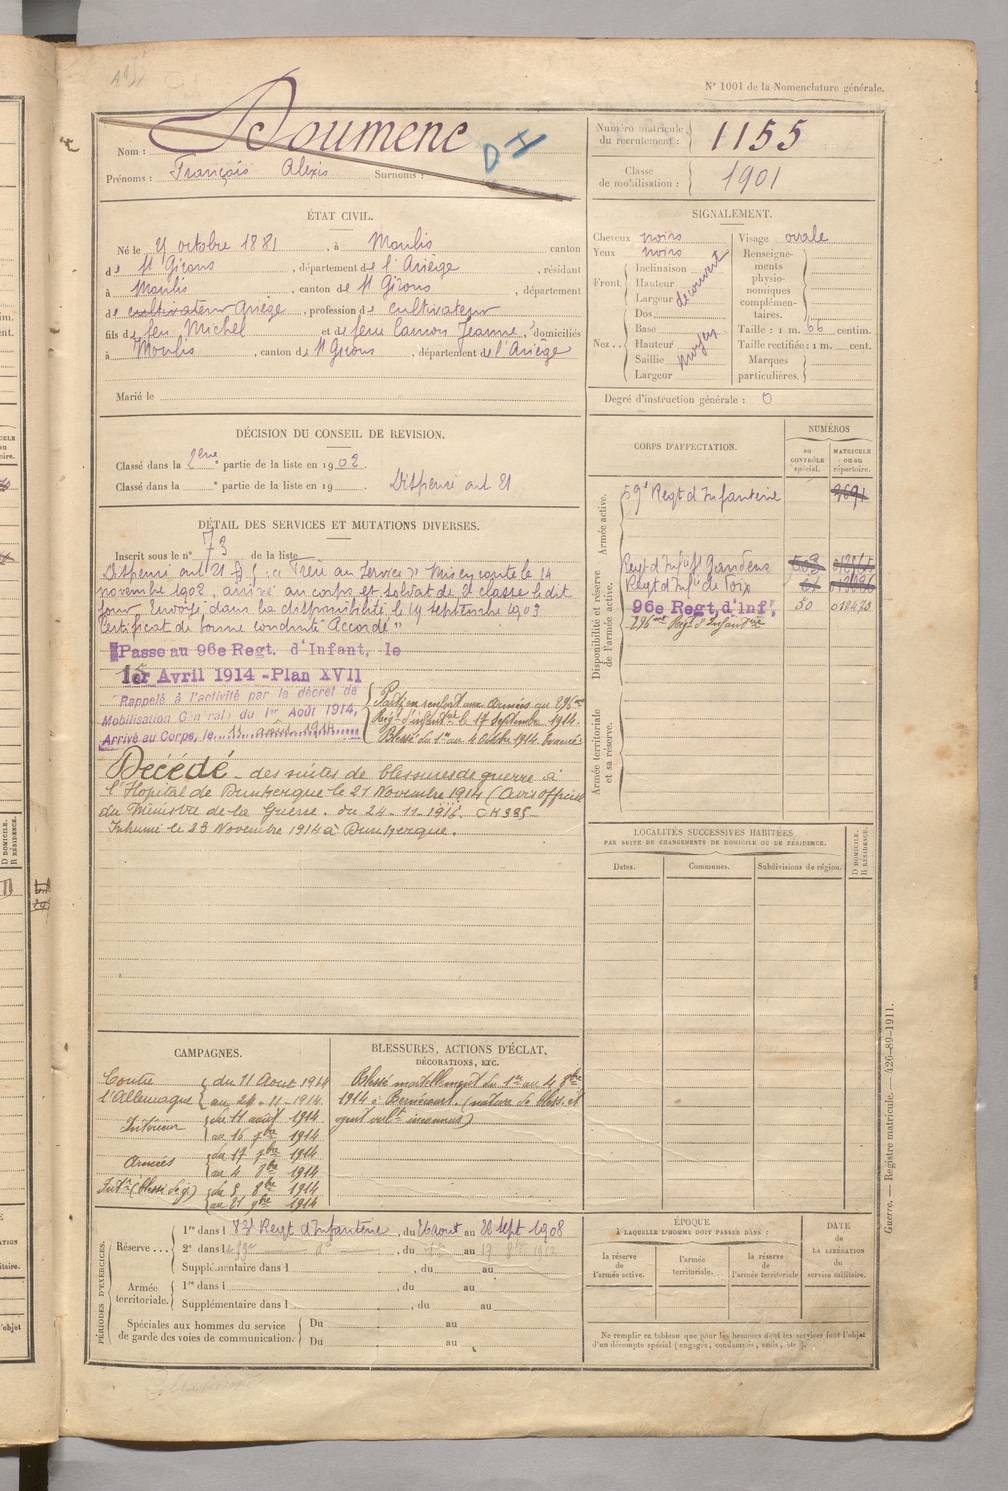 N° 1001 de la Nomenclature générale.
Nom : Doumenc
D I
Prénoms : François Alexis Surnoms :
Numéro matricule du recrutement : 1155
Classe de mobilisation : 1901
ÉTAT CIVIL.
Né le 4 octobre 1881, à Moulis canton
de St Girons, département de l'Ariège, résidant
à Moulis, canton de St Girons, département
de cultivateur Ariège, profession de cultivateur
fils de feu Michel et de feue Jeanne, domiciliés
à Moulis, canton de St Girons, département de l'Ariège
Marié le
SIGNALEMENT.
Cheveux noirs
Yeux noirs
Front. Inclinaison
Hauteur
Largeur
découvert
Nez.. Dos
Base
Hauteur
Saillie
Largeur
moyen
Visage ovale
Renseignements physionomiques complémentaires.
Taille : 1 m. 66 centim.
Taille rectifiée : 1 m. cent.
Marques particulières.
Degré d'instruction générale : 0
DÉCISION DU CONSEIL DE REVISION.
Classé dans la 2ème partie de la liste en 1902.
Classé dans la e partie de la liste en 19
Dispensé art 21
CORPS D'AFFECTATION.
NUMÉROS
au CONTRÔLE spécial.
MATRICULE ou au répertoire.
Armée active.
59e Regt d'Infanterie
Disponibilité et réserve de l'armée active.
Regt d'Inf St Gaudens
Regt d'Inf de Foix
96e Regt, d'Inf, 50
296me Regt d'Infanterie
Armée territoriale et sa réserve.
DÉTAIL DES SERVICES ET MUTATIONS DIVERSES.
Inscrit sous le n° 73 de la liste
Dispensé art 21 frère au service. Mis en route le 14
novembre 1902, arrivé au corps et soldat de 2e classe le dit
jour. Envoyé dans la disponibilité le 19 septembre 1903
Certificat de bonne conduite "Accordé"
Passe au 96e Regt. d'Infant, le
1er Avril 1914 - Plan XVII
Rappelé à l'activité par le décret de
Mobilisation Générale du 1er Août 1914,
Arrivé au Corps, le 11 août 1914
Parti en renfort aux Armées au 296me
Regt d'infanterie le 17 Septembre 1914.
Blessé du 1er au 4 Octobre 1914. Evacué
Décédé - des suites de blessures de guerre à
l'Hopital de Dunkerque le 21 Novembre 1914 (Avis officiel
du Ministre de la Guerre. du 24-11-1914
Inhumé le 23 Novembre 1914 à Dunkerque.
LOCALITÉS SUCCESSIVES HABITÉES
PAR SUITE DE CHANGEMENTS DE DOMICILE OU DE RÉSIDENCE.
Dates.
Communes.
Subdivisions de région.
D DOMICILE.
R RÉSIDENCE.
CAMPAGNES.
Contre l'Allemagne du 11 Aout 1914
au 21-11-1914.
Intérieur du 11 août 1914
au 16 7bre 1914
Armées du 17 7bre 1914
au 4 8bre 1914
Intr (blessé de g.) du 5 8bre 1914
au 21 9bre 1914
BLESSURES, ACTIONS D'ÉCLAT,
DÉCORATIONS, ETC.
Blessé mortellement du 1er au 4 8bre
1914 à (nature de bless. et
agent vult inconnus)
PÉRIODES D'EXERCICES.
Réserve... 1re dans l 83e Regt d'Infanterie, du 26 aout au 22 Sept 1908
2e dans l , du au
Supplémentaire dans l , du au
Armée territoriale. 1re dans l , du au
Supplémentaire dans l , du au
Spéciales aux hommes du service de garde des voies de communication.
Du au
Du au
ÉPOQUE
À LAQUELLE L'HOMME DOIT PASSER DANS :
la réserve de l'armée active.
l'armée territoriale.
la réserve de l'armée territoriale
DATE DE LA LIBÉRATION du service militaire.
Ne remplir ce tableau que pour les hommes dont les services font l'objet
d'un décompte spécial (engagés, condamnés, omis, etc.).
Guerre. — Registre matricule. — 426-89-1911.